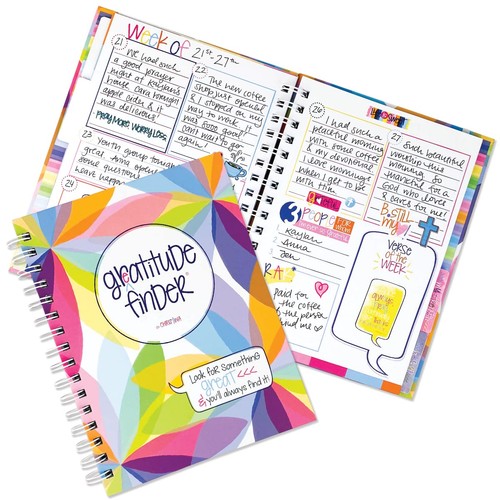 Week of 21st-27th
21
We had such
a good prayer
night at Kaitlyn's
house. Cara brought
apple cider & it
was delicious!
PRAY MORE. WORRY LESS.
22
The new coffee
shop just opened
& I stopped on my
way to work!!
was sooo good!
can't wait to go
again!
23
Youth group tonight
great.
some questions
have happen
24
26
I had such a
peaceful morning
with some coffee
& my devotional.
I love mornings
when I get to be
with Him.
27
Such beautiful
worship this
morning. So
thankful for a
God who loves
& cares for me!
B STILL
my
3 PEOPLE FOR
Kaitlyn
Anna
Jen
VERSE
OF THE
WEEK
RA
paid for
the coffee
of the person
behind me
gReatitude
finDER
Look for something
great <<<
& you'll always find it!